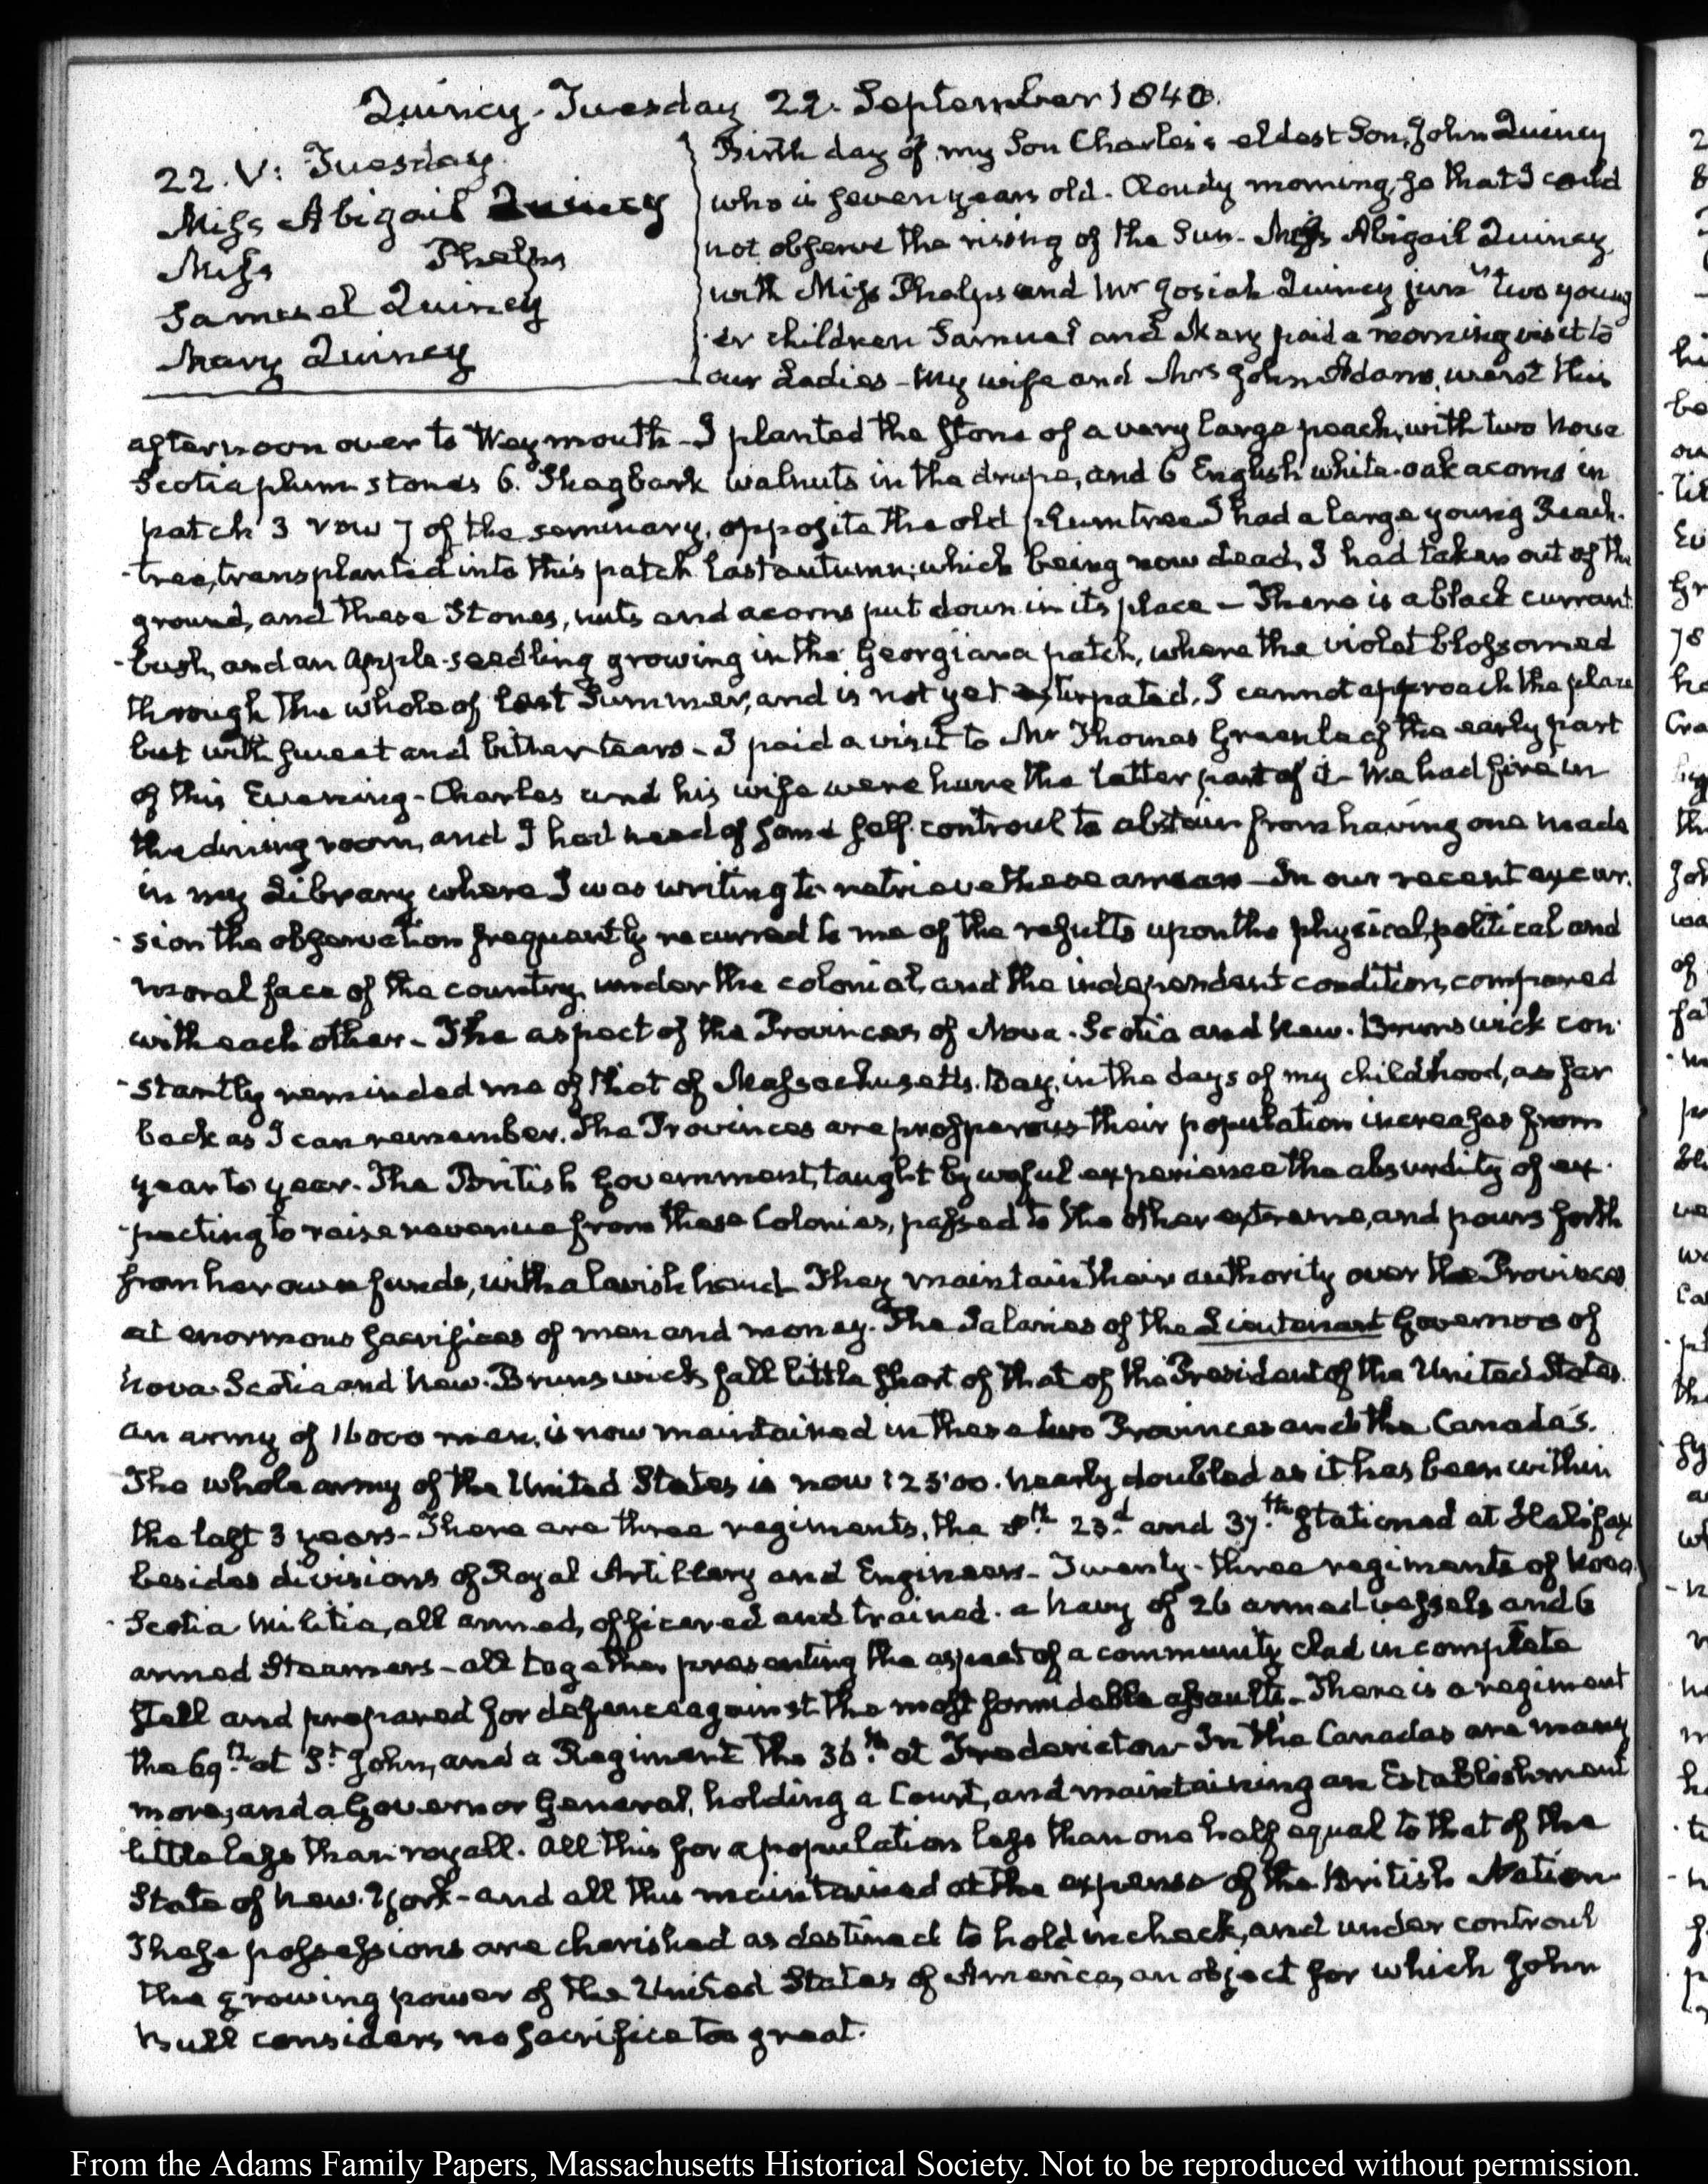 Quincy. Tuesday 22. September 1840.
22. V: Tuesday.
Miss Abigail Quincy
Miss Phelps
Samuel Quincy
Mary Quincy
Birth day of my Son Charles's eldest Son, John Quincy
who is seven years old. Cloudy morning, so that I could
not observe the rising of the Sun. Miss Abigail Quincy
with Miss Phelps and Mr Josiah Quincy junrs two young
-er children Samuel and Mary paid a morning visit to
our Ladies - My wife and Mrs John Adams, went this
afternoon over to Weymouth - I planted the stone of a very large peach, with two Nova
Scotia plum stones 6. Shagbark walnuts in the drupe, and 6 English white-oak acorns in
patch 3 row 7 of the seminary, opposite the old plumtree I had a large young Peach-
-tree, transplanted into this patch last autumn; which being now dead, I had taken out of the
ground, and these Stones, nuts and acorns put down in its place - There is a black currant
-bush, and an apple-seedling growing in the Georgiana patch, where the violet blossomed
through the whole of last Summer, and is not yet extirpated. I cannot approach the place
but with sweet and bitter tears - I paid a visit to Mr Thomas Greenleaf the early part
of this Evening - Charles and his wife were here the latter part of it - We had fire in
the dining room, and I had need of some self-controul to abstain from having one made
in my Library where I was writing to retrieve these arrears - In our recent excur-
-sion the observation frequently recurred to me of the results upon the physical, political and
moral face of the country, under the colonial, and the independent condition, compared
with each other - The aspect of the Provinces of Nova-Scotia and New-Brunswick con-
-stantly reminded me of that of Massachusetts-Bay, in the days of my childhood, as far
back as I can remember. The Provinces are prosperous - their population increases from
year to year. The British Government, taught by woful experience the absurdity of ex-
-pecting to raise revenue from these Colonies, passed to the other extreme, and pours forth
from her own funds, with a lavish hand. They maintain their authority over the Provinces
at enormous sacrifices of men and money. The Salaries of the Lieutenant Governors of
Nova-Scotia and New-Brunswick, fall little short of that of the President of the United States.
An army of 16000 men, is now maintained in these two Provinces and the Canada's.
The whole army of the United States is now 12500. nearly doubled as it has been within
the last 3 years - There are three regiments, the 8th 23d and 37th stationed at Halifax
besides divisions of Royal Artillery and Engineers - Twenty-three regiments of Nova
-Scotia Militia, all armed, officered and trained. a Navy of 26 armed vessels and 6
armed Steamers - all together presenting the aspect of a community clad in complete
steel and prepared for defence against the most formidable assaults - There is a regiment
the 69th at St John, and a Regiment the 36th at Fredericton - In the Canadas are many
more, and a Governor General, holding a Court, and maintaining an Establishment
little less than royall. All this for a population less than one half equal to that of the
State of New-York - and all this maintained at the expense of the British Nation
These possessions are cherished as destined to hold in check, and under controul
the growing power of the United States of America, an object for which John
Bull considers no sacrifice too great.
From the Adams Family Papers, Massachusetts Historical Society. Not to be reproduced without permission.